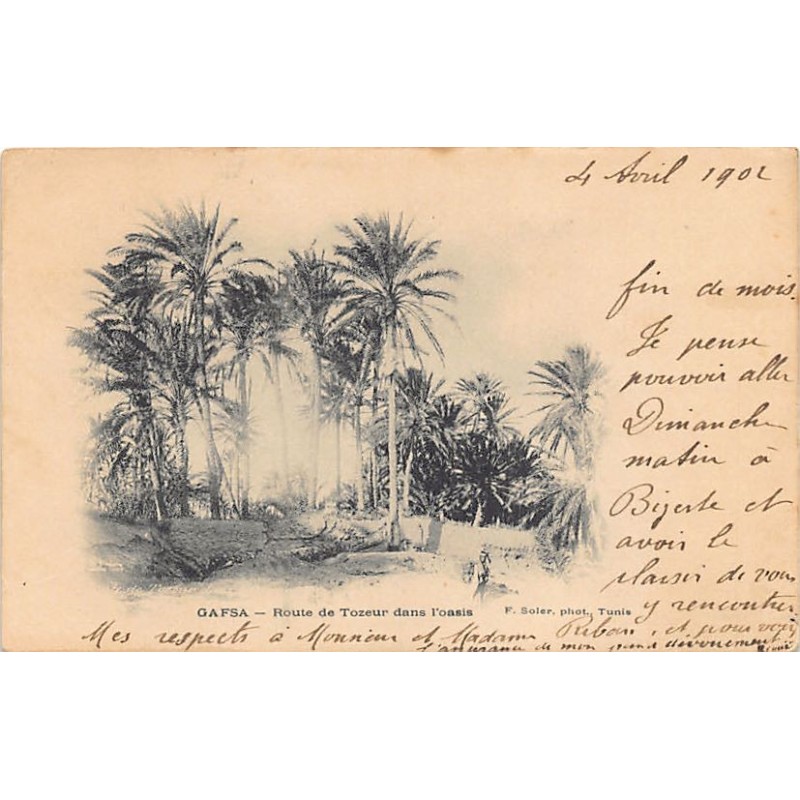 4 Avril 1902
fin de mois.
Je pense
pouvoir aller
Dimanche
matin à
Bizerte et
avoir le
plaisir de vous
y rencontrer
GAFSA — Route de Tozeur dans l'oasis
F. Soler, phot., Tunis
Mes respects à Monsieur et Madame et pour vous
l'assurance de mon grand dévouement